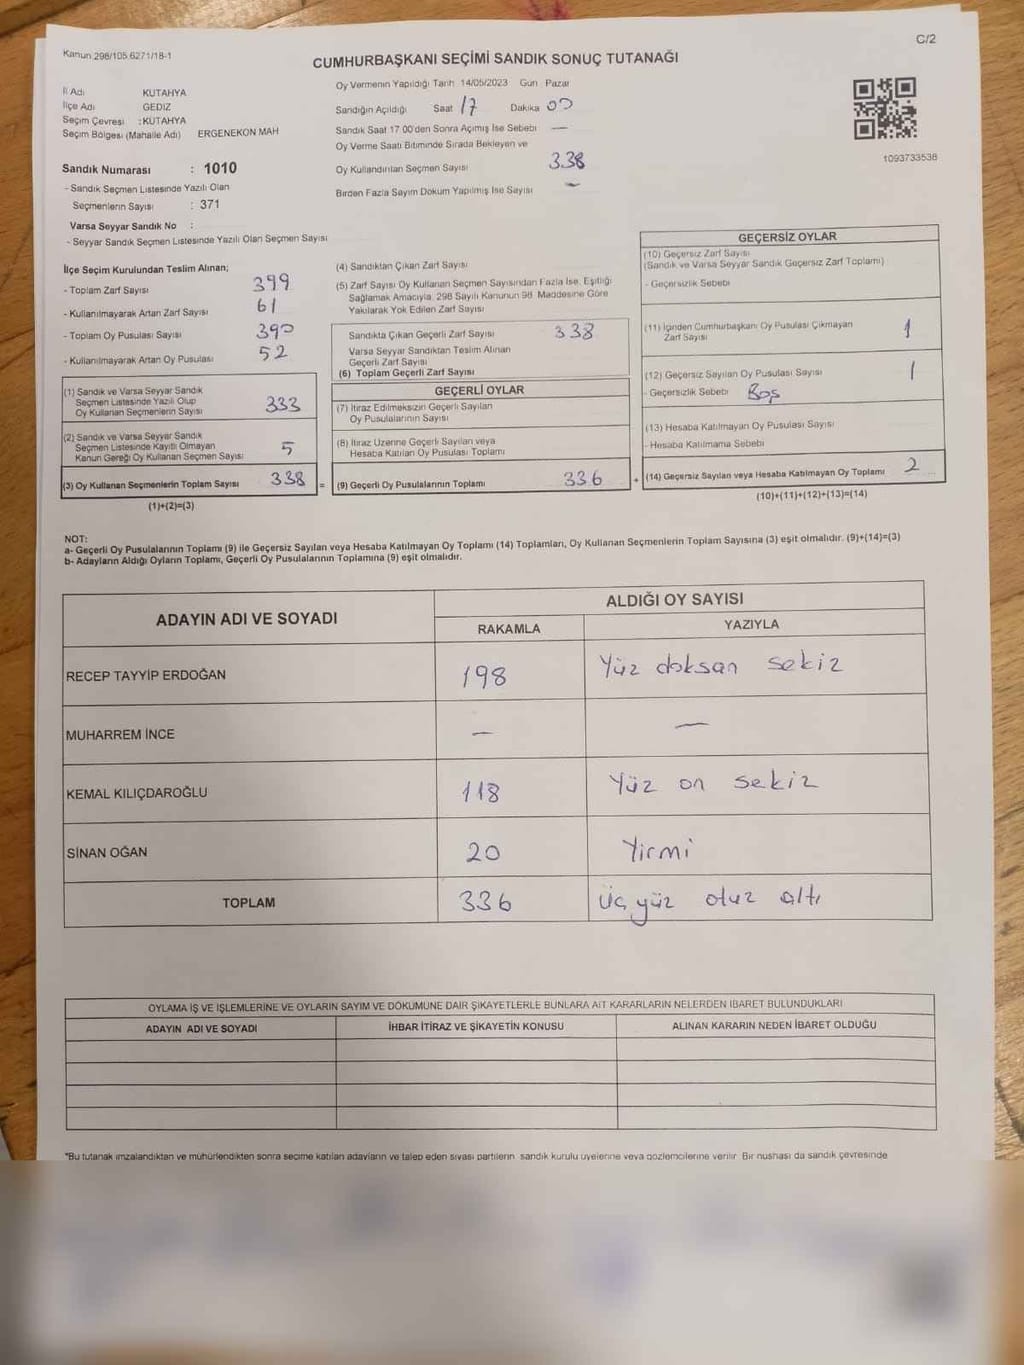 Kanun 298/105 6271/18-1
C/2
CUMHURBAŞKANI SEÇİMİ SANDIK SONUÇ TUTANAĞI
İl Adı KUTAHYA
İlçe Adı GEDIZ
Seçim Çevresi :KUTAHYA
Seçim Bölgesi (Mahalle Adı) ERGENEKON MAH
Sandık Numarası : 1010
- Sandık Seçmen Listesinde Yazılı Olan
Seçmenlerin Sayısı : 371
Varsa Seyyar Sandık No :
- Seyyar Sandık Seçmen Listesinde Yazılı Olan Seçmen Sayısı
Oy Vermenin Yapıldığı Tarih 14/05/2023 Gün Pazar
Sandığın Açıldığı Saat 17 Dakika 00
Sandık Saat 17 00'den Sonra Açımış İse Sebebi —
Oy Verme Saati Bitiminde Sırada Bekleyen ve
Oy Kullandırılan Seçmen Sayısı 338
Birden Fazla Sayım Döküm Yapılmış İse Sayısı —
1093733538
İlçe Seçim Kurulundan Teslim Alınan;
- Toplam Zarf Sayısı 399
- Kullanılmayarak Artan Zarf Sayısı 61
- Toplam Oy Pusulası Sayısı 390
- Kullanılmayarak Artan Oy Pusulası 52
(1) Sandık ve Varsa Seyyar Sandık
Seçmen Listesinde Yazılı Olup
Oy Kullanan Seçmenlerin Sayısı 333
(2) Sandık ve Varsa Seyyar Sandık
Seçmen Listesinde Kayıtlı Olmayan
Kanun Gereği Oy Kullanan Seçmen Sayısı 5
(3) Oy Kullanan Seçmenlerin Toplam Sayısı 338
(1)+(2)=(3)
(4) Sandıktan Çıkan Zarf Sayısı
(5) Zarf Sayısı Oy Kullanan Seçmen Sayısından Fazla İse, Eşitliği
Sağlamak Amacıyla, 298 Sayılı Kanunun 98 Maddesine Göre
Yakılarak Yok Edilen Zarf Sayısı
Sandıkta Çıkan Geçerli Zarf Sayısı 338
Varsa Seyyar Sandıktan Teslim Alınan
Geçerli Zarf Sayısı
(6) Toplam Geçerli Zarf Sayısı
GEÇERLİ OYLAR
(7) İtiraz Edilmeksizin Geçerli Sayılan
Oy Pusulalarının Sayısı
(8) İtiraz Üzerine Geçerli Sayılan veya
Hesaba Katılan Oy Pusulası Toplamı
= (9) Geçerli Oy Pusulalarının Toplamı 336
GEÇERSİZ OYLAR
(10) Geçersiz Zarf Sayısı
(Sandık ve Varsa Seyyar Sandık Geçersiz Zarf Toplamı)
- Geçersizlik Sebebi
(11) İçinden Cumhurbaşkanı Oy Pusulası Çıkmayan
Zarf Sayısı 1
(12) Geçersiz Sayılan Oy Pusulası Sayısı 1
- Geçersizlik Sebebi Boş
(13) Hesaba Katılmayan Oy Pusulası Sayısı
- Hesaba Katılmama Sebebi
+ (14) Geçersiz Sayılan veya Hesaba Katılmayan Oy Toplamı 2
(10)+(11)+(12)+(13)=(14)
NOT:
a- Geçerli Oy Pusulalarının Toplamı (9) ile Geçersiz Sayılan veya Hesaba Katılmayan Oy Toplamı (14) Toplamları, Oy Kullanan Seçmenlerin Toplam Sayısına (3) eşit olmalıdır. (9)+(14)=(3)
b- Adayların Aldığı Oyların Toplamı, Geçerli Oy Pusulalarının Toplamına (9) eşit olmalıdır.
ADAYIN ADI VE SOYADI
ALDIĞI OY SAYISI
RAKAMLA YAZIYLA
RECEP TAYYİP ERDOĞAN 198 Yüz doksan sekiz
MUHARREM İNCE — —
KEMAL KILIÇDAROĞLU 118 Yüz on sekiz
SİNAN OĞAN 20 Yirmi
TOPLAM 336 Üç yüz otuz altı
OYLAMA İŞ VE İŞLEMLERİNE VE OYLARIN SAYIM VE DÖKÜMÜNE DAİR ŞİKAYETLERLE BUNLARA AİT KARARLARIN NELERDEN İBARET BULUNDUKLARI
ADAYIN ADI VE SOYADI İHBAR İTİRAZ VE ŞİKAYETİN KONUSU ALINAN KARARIN NEDEN İBARET OLDUĞU
*Bu tutanak imzalandıktan ve mühürlendikten sonra seçime katılan adayların ve talep eden siyasi partilerin sandık kurulu üyelerine veya gözlemcilerine verilir Bir nüshası da sandık çevresinde